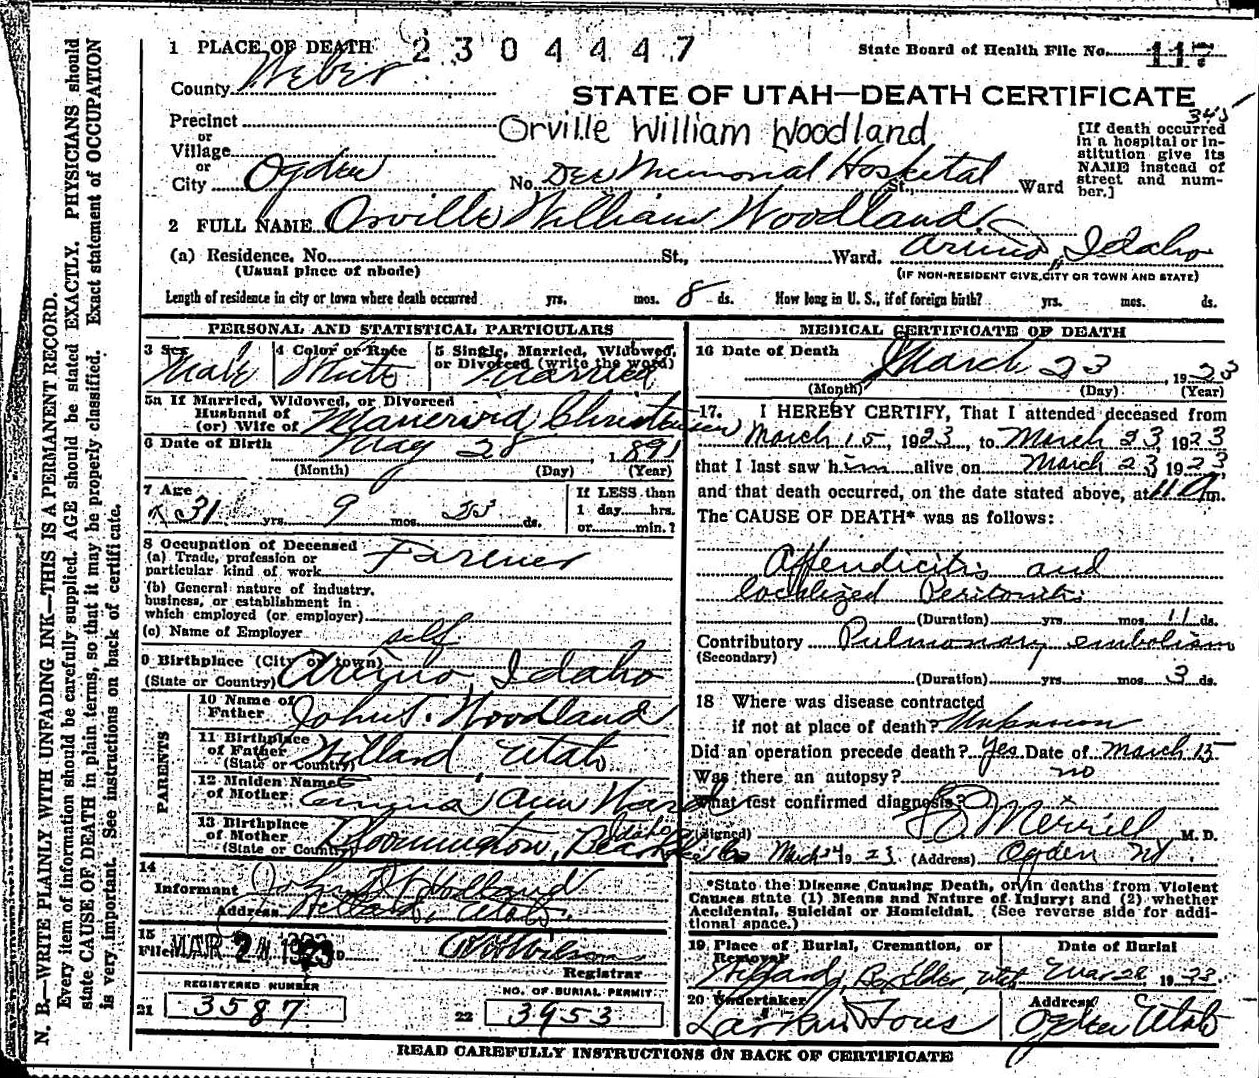 1 PLACE OF DEATH 2304447 State Board of Health File No. 117
County Weber
STATE OF UTAH—DEATH CERTIFICATE
345
Precinct
or
Village
or
City Ogden No. Dee Memorial Hospital St., Ward
Orville William Woodland
[If death occurred
in a hospital or in-
stitution give its
NAME instead of
street and num-
ber.]
2 FULL NAME Orville William Woodland
(a) Residence. No. St., Ward. Arimo, Idaho
(Usual place of abode) (IF NON-RESIDENT GIVE CITY OR TOWN AND STATE)
Length of residence in city or town where death occurred yrs. mos. 8 ds. How long in U. S., if of foreign birth? yrs. mos. ds.
PERSONAL AND STATISTICAL PARTICULARS
3 Sex Male
4 Color or Race White
5 Single, Married, Widowed,
or Divorced (write the word)
Married
5a If Married, Widowed, or Divorced
Husband of
(or) Wife of Christensen
6 Date of Birth May 28 1891
(Month) (Day) (Year)
7 Age
31 yrs. 9 mos. 23 ds.
If LESS than
1 day hrs.
or min.?
8 Occupation of Deceased
(a) Trade, profession or
particular kind of work Farmer
(b) General nature of industry,
business, or establishment in
which employed (or employer)
(c) Name of Employer self
9 Birthplace (City or town)
(State or Country) Arimo, Idaho
PARENTS
10 Name of
Father John Woodland
11 Birthplace
of Father
(State or Country) Willard, Utah
12 Maiden Name
of Mother Emma Ann Ward
13 Birthplace
of Mother
(State or Country) Bloomington, Bear Lake Co Idaho
14
Informant John Woodland
Address Willard, Utah.
15
Filed MAR 24 1923
Wilson
Registrar
REGISTERED NUMBER
21 3587
NO. OF BURIAL PERMIT
22 3953
MEDICAL CERTIFICATE OF DEATH
16 Date of Death March 23, 1923
(Month) (Day) (Year)
17. I HEREBY CERTIFY, That I attended deceased from
March 15, 1923, to March 23, 1923
that I last saw him alive on March 23, 1923,
and that death occurred, on the date stated above, at 11 m.
The CAUSE OF DEATH* was as follows:
Appendicitis and
localized Peritonitis
(Duration) yrs. mos. 11 ds.
Contributory Pulmonary embolism
(Secondary)
(Duration) yrs. mos. 3 ds.
18 Where was disease contracted
if not at place of death? Unknown
Did an operation precede death? Yes Date of March 15
Was there an autopsy? no
What test confirmed diagnosis? x
(Signed) Merrill M. D.
March 24 1923 (Address) Ogden Ut.
*State the Disease Causing Death, or in deaths from Violent
Causes state (1) Means and Nature of Injury; and (2) whether
Accidental, Suicidal or Homicidal. (See reverse side for addi-
tional space.)
19 Place of Burial, Cremation, or
Removal
Willard, Box Elder, Utah
Date of Burial
Mar 28 1923
20 Undertaker
Larkin & Sons
Address
Ogden Utah
READ CAREFULLY INSTRUCTIONS ON BACK OF CERTIFICATE
N. B.—WRITE PLAINLY WITH UNFADING INK—THIS IS A PERMANENT RECORD.
Every item of information should be carefully supplied. AGE should be stated EXACTLY. PHYSICIANS should
state CAUSE OF DEATH in plain terms, so that it may be properly classified. Exact statement of OCCUPATION
is very important. See instructions on back of certificate.